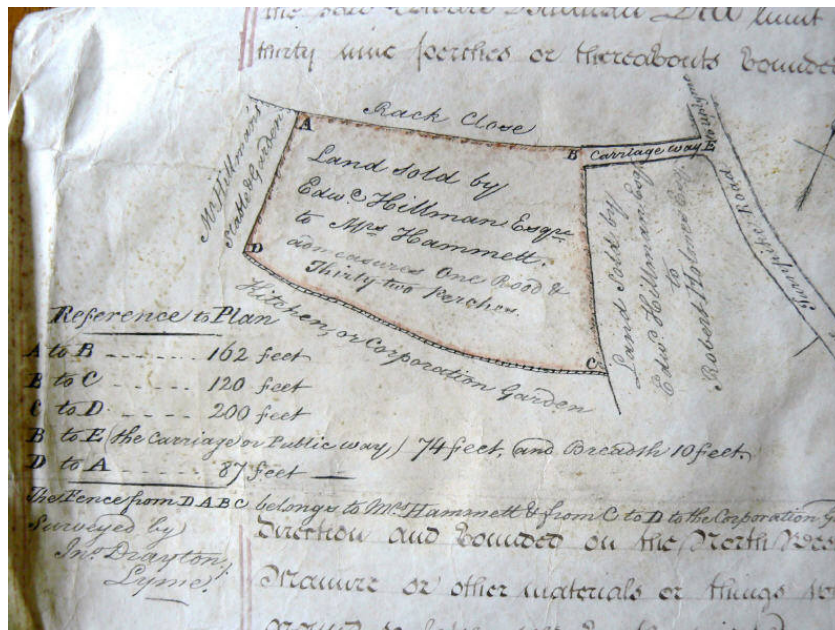 thirty nine perches or thereabouts bounded
Rack Close
A
B Carriage way E
Turnpike Road
Mr Hillman's
Stable & Garden
Land Sold by
Edwd. Hillman Esqre
to Mrs Hammett.
admeasures One Rood &
Thirty two Perches.
D
C
Land Sold by
Edwd. Hillman Esqre
to
Robert Holmes Esqre
Kitchen, or Corporation Garden
Reference to Plan
A to B ----- 162 feet
B to C ----- 120 feet
C to D ----- 200 feet
B to E (the Carriage or Public way) 74 feet, and Breadth 10 feet.
D to A ----- 87 feet
The Fence from D A B C belongs to Mrs Hammett & from C to D to the Corporation
Surveyed by
Jno. Drayton,
Lyme.
Direction and Bounded on the North Wes
Manure or other materials or things